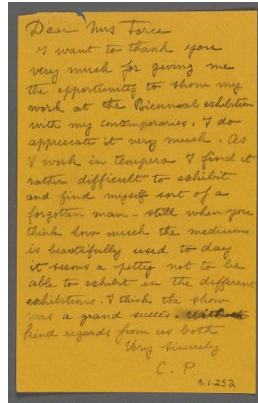 Dear Mrs Force
I want to thank you
very much for giving me
the opportunity to show my
work at the Bienneal exhibition
with my contemporaries. I do
appreciate it very much. As
I work in tempera I find it
rather difficult to exhibit
and find myself sort of a
forgotten man - still when you
think how much the medium
is beautifully used to day
it seems a pitty not to be
able to exhibit in the different
exhibitions. I think the show
was a grand success. With
kind regards from us both
Very Sincerely
C. P.
A.1.252